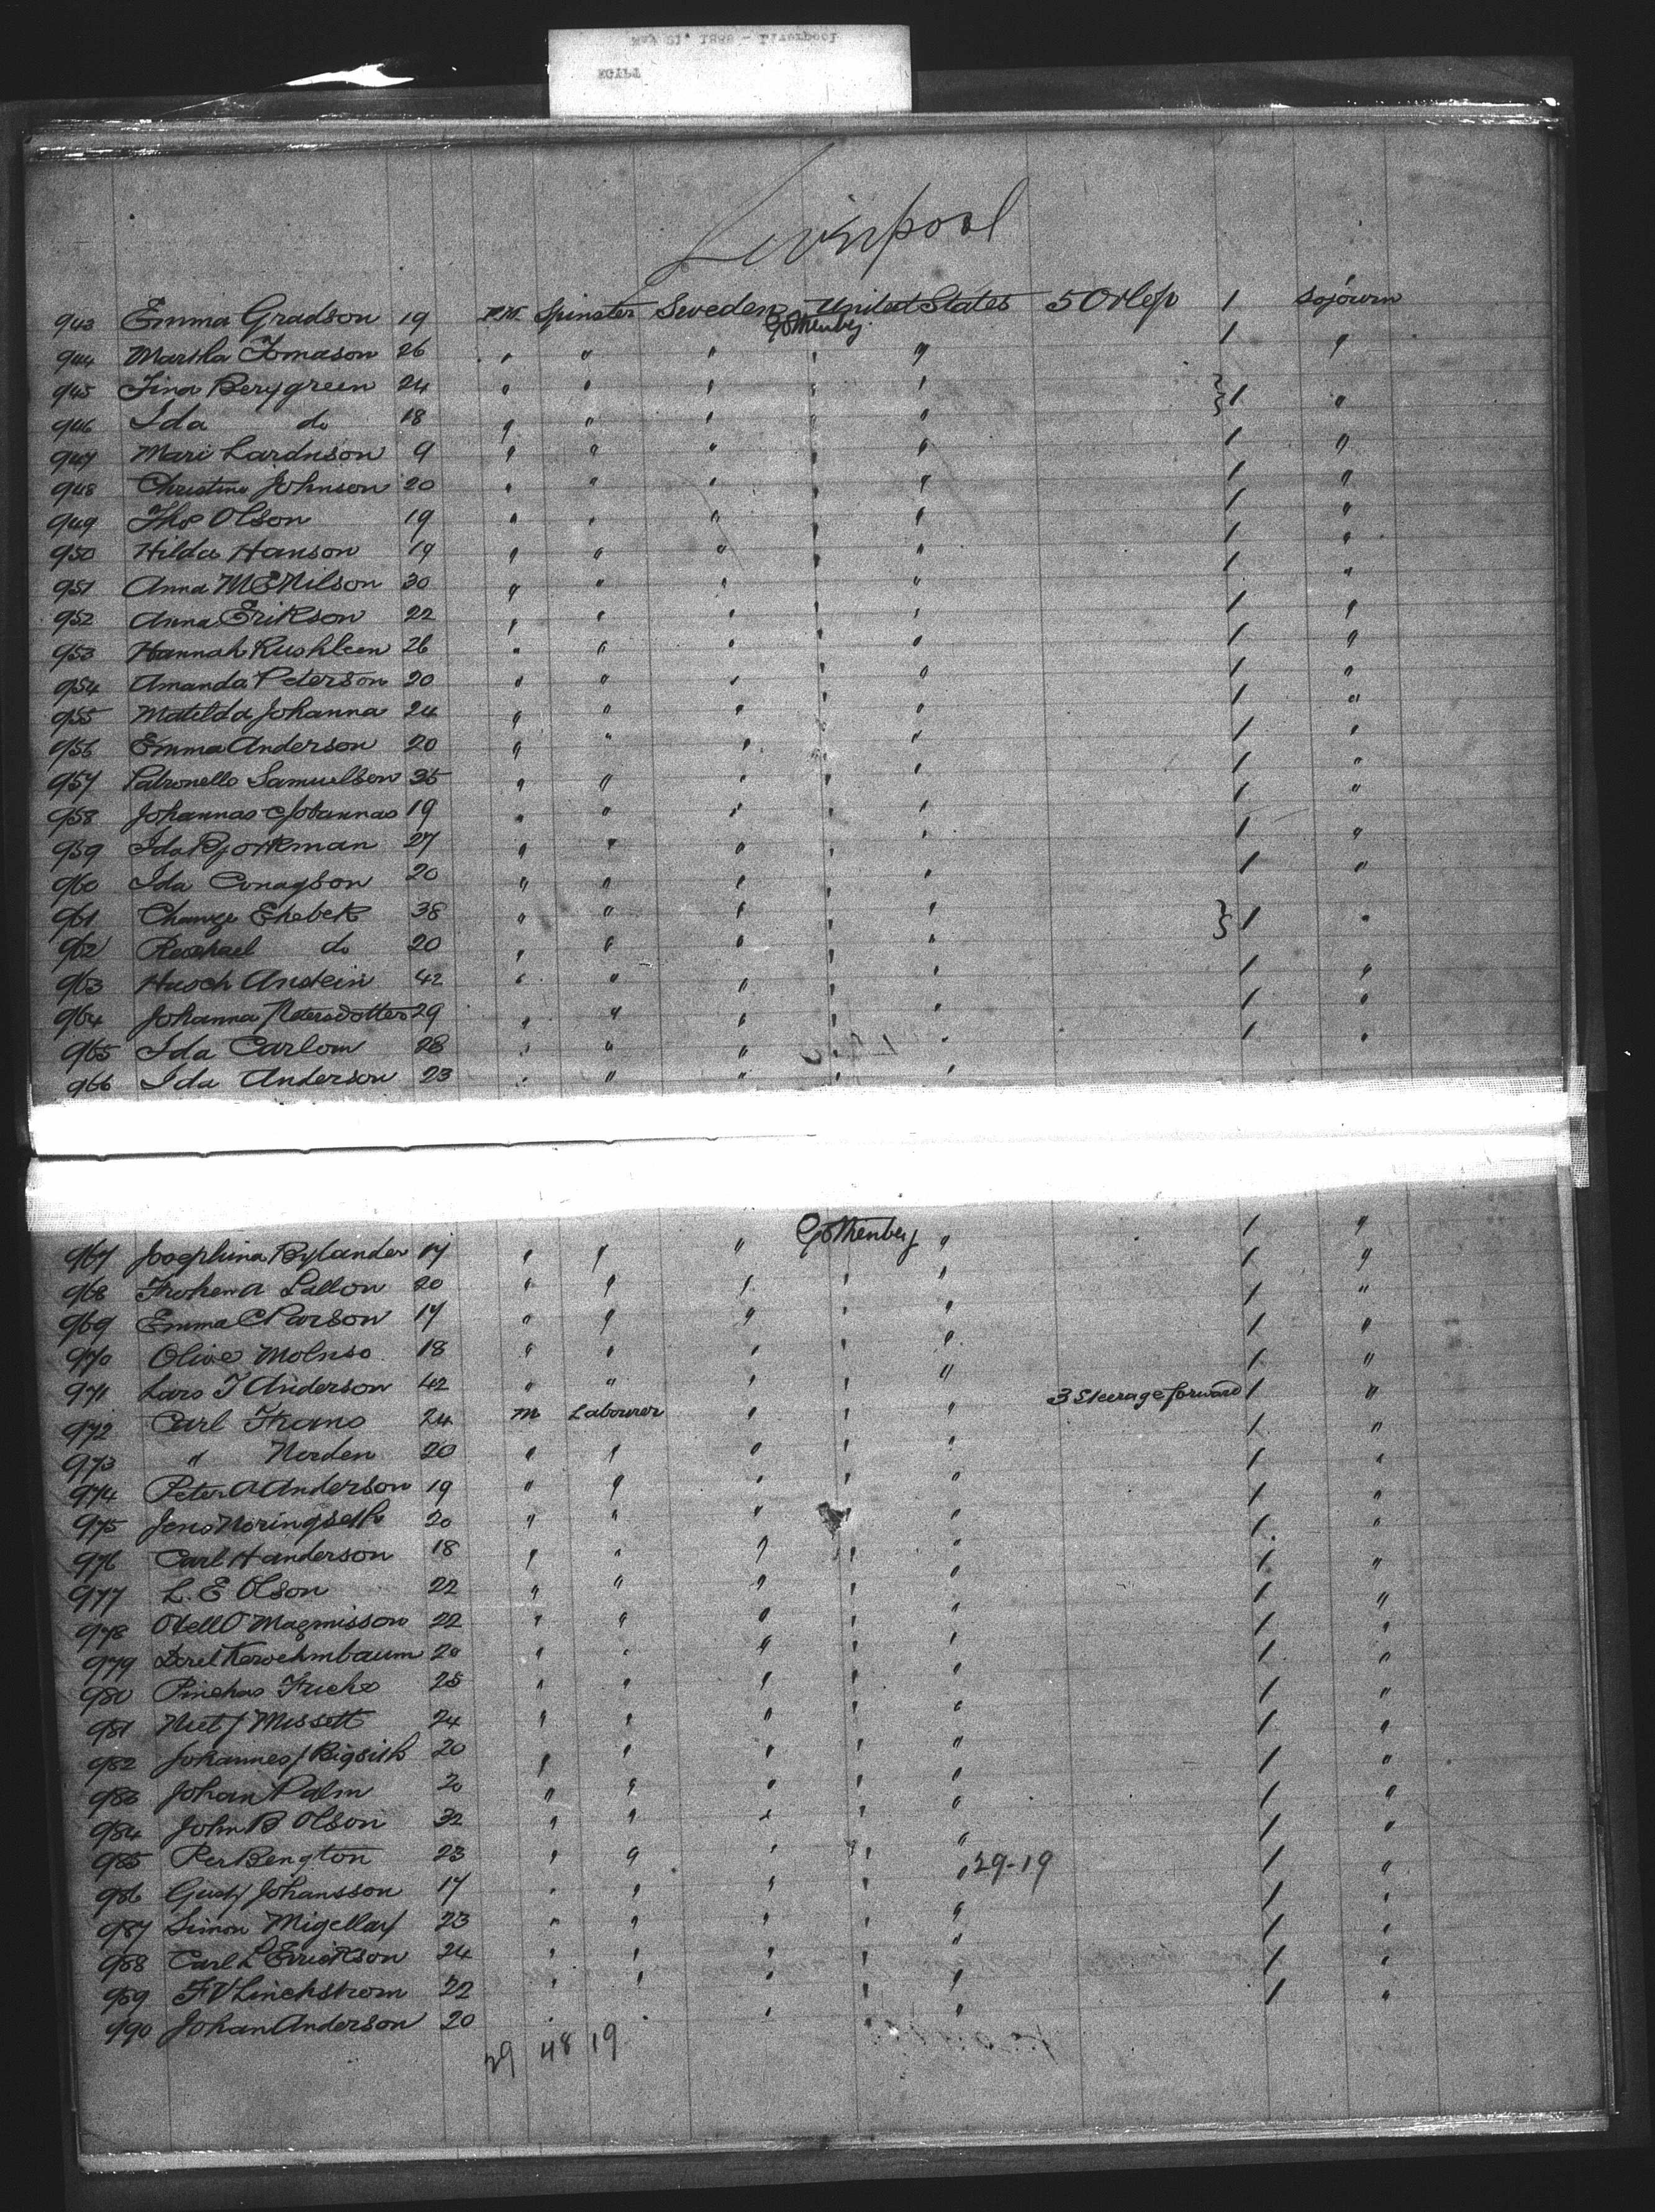 Liverpool
943 Emma Gradson 19 Spinster Sweden United States 5 Orlop 1 Sojourn
Gothenbg
944 Martha Tomason 26 " " " " " 1 "
945 Tina Berygreen 24 " " " " " } 1 "
946 Ida do 18 " " " " "
947 Mari Lardnson 9 " " " " " 1 "
948 Christina Johnson 20 " " " " " 1 "
949 Thos Olson 19 " " " " " 1 "
950 Hilda Hanson 19 " " " " " 1 "
951 Anna M E Nilson 30 " " " " " 1 "
952 Anna Erikson 22 " " " " " 1 "
953 Hannah Rushleen 26 " " " " " 1 "
954 Amanda Peterson 20 " " " " " 1 "
955 Matilda Johanna 24 " " " " " 1 "
956 Emma Anderson 20 " " " " " 1 "
957 Patronello Samuelson 35 " " " " " 1 "
958 Johannas Johannas 19 " " " " " 1 "
959 Ida Bjorkman 27 " " " " " 1 "
960 Ida Conagson 20 " " " " " 1 "
961 Chawge Ehebek 38 " " " " " } 1 "
962 Reachael do 20 " " " " "
963 Hasch Anstein 42 " " " " " 1 "
964 Johanna Petersdotter 29 " " " " " 1 "
965 Ida Carlom 28 " " " " " 1 "
966 Ida Anderson 23 " " " " "
967 Josephina Bylander 17 " " " Gothenberg " 1 "
968 Lallon 20 " " " " " 1 "
969 Emma C Parson 17 " " " " " 1 "
970 Olive Molnso 18 " " " " " 1 "
971 Lars J Anderson 42 " " " " " 1 "
972 Carl Thomo 24 m Labourer " " " 3 Steerage forward 1 "
973 " Norden 20 " " " " " 1 "
974 Peter A Anderson 19 " " " " " 1 "
975 Jens Noringseth 20 " " " " " 1 "
976 Carl H anderson 18 " " " " " 1 "
977 L. E Olson 22 " " " " " 1 "
978 Otell O Magnisson 22 " " " " " 1 "
979 Dorel Kerochmbaum 20 " " " " " 1 "
980 Pinchas Fuchs 25 " " " " " 1 "
981 Missett 24 " " " " " 1 "
982 Johannes J Bigsith 20 " " " " " 1 "
983 Johan Palm 20 " " " " " 1 "
984 John B Olson 32 " " " " " 1 "
985 Per Bengton 23 " " " " " 29-19 1 "
986 Gustf Johansson 17 " " " " " 1 "
987 Simon Migellaf 23 " " " " " 1 "
988 Carl L Errickson 24 " " " " " 1 "
989 F V Linchstrom 22 " " " " " 1 "
990 Johan Anderson 20 " " " " "
29 48 19